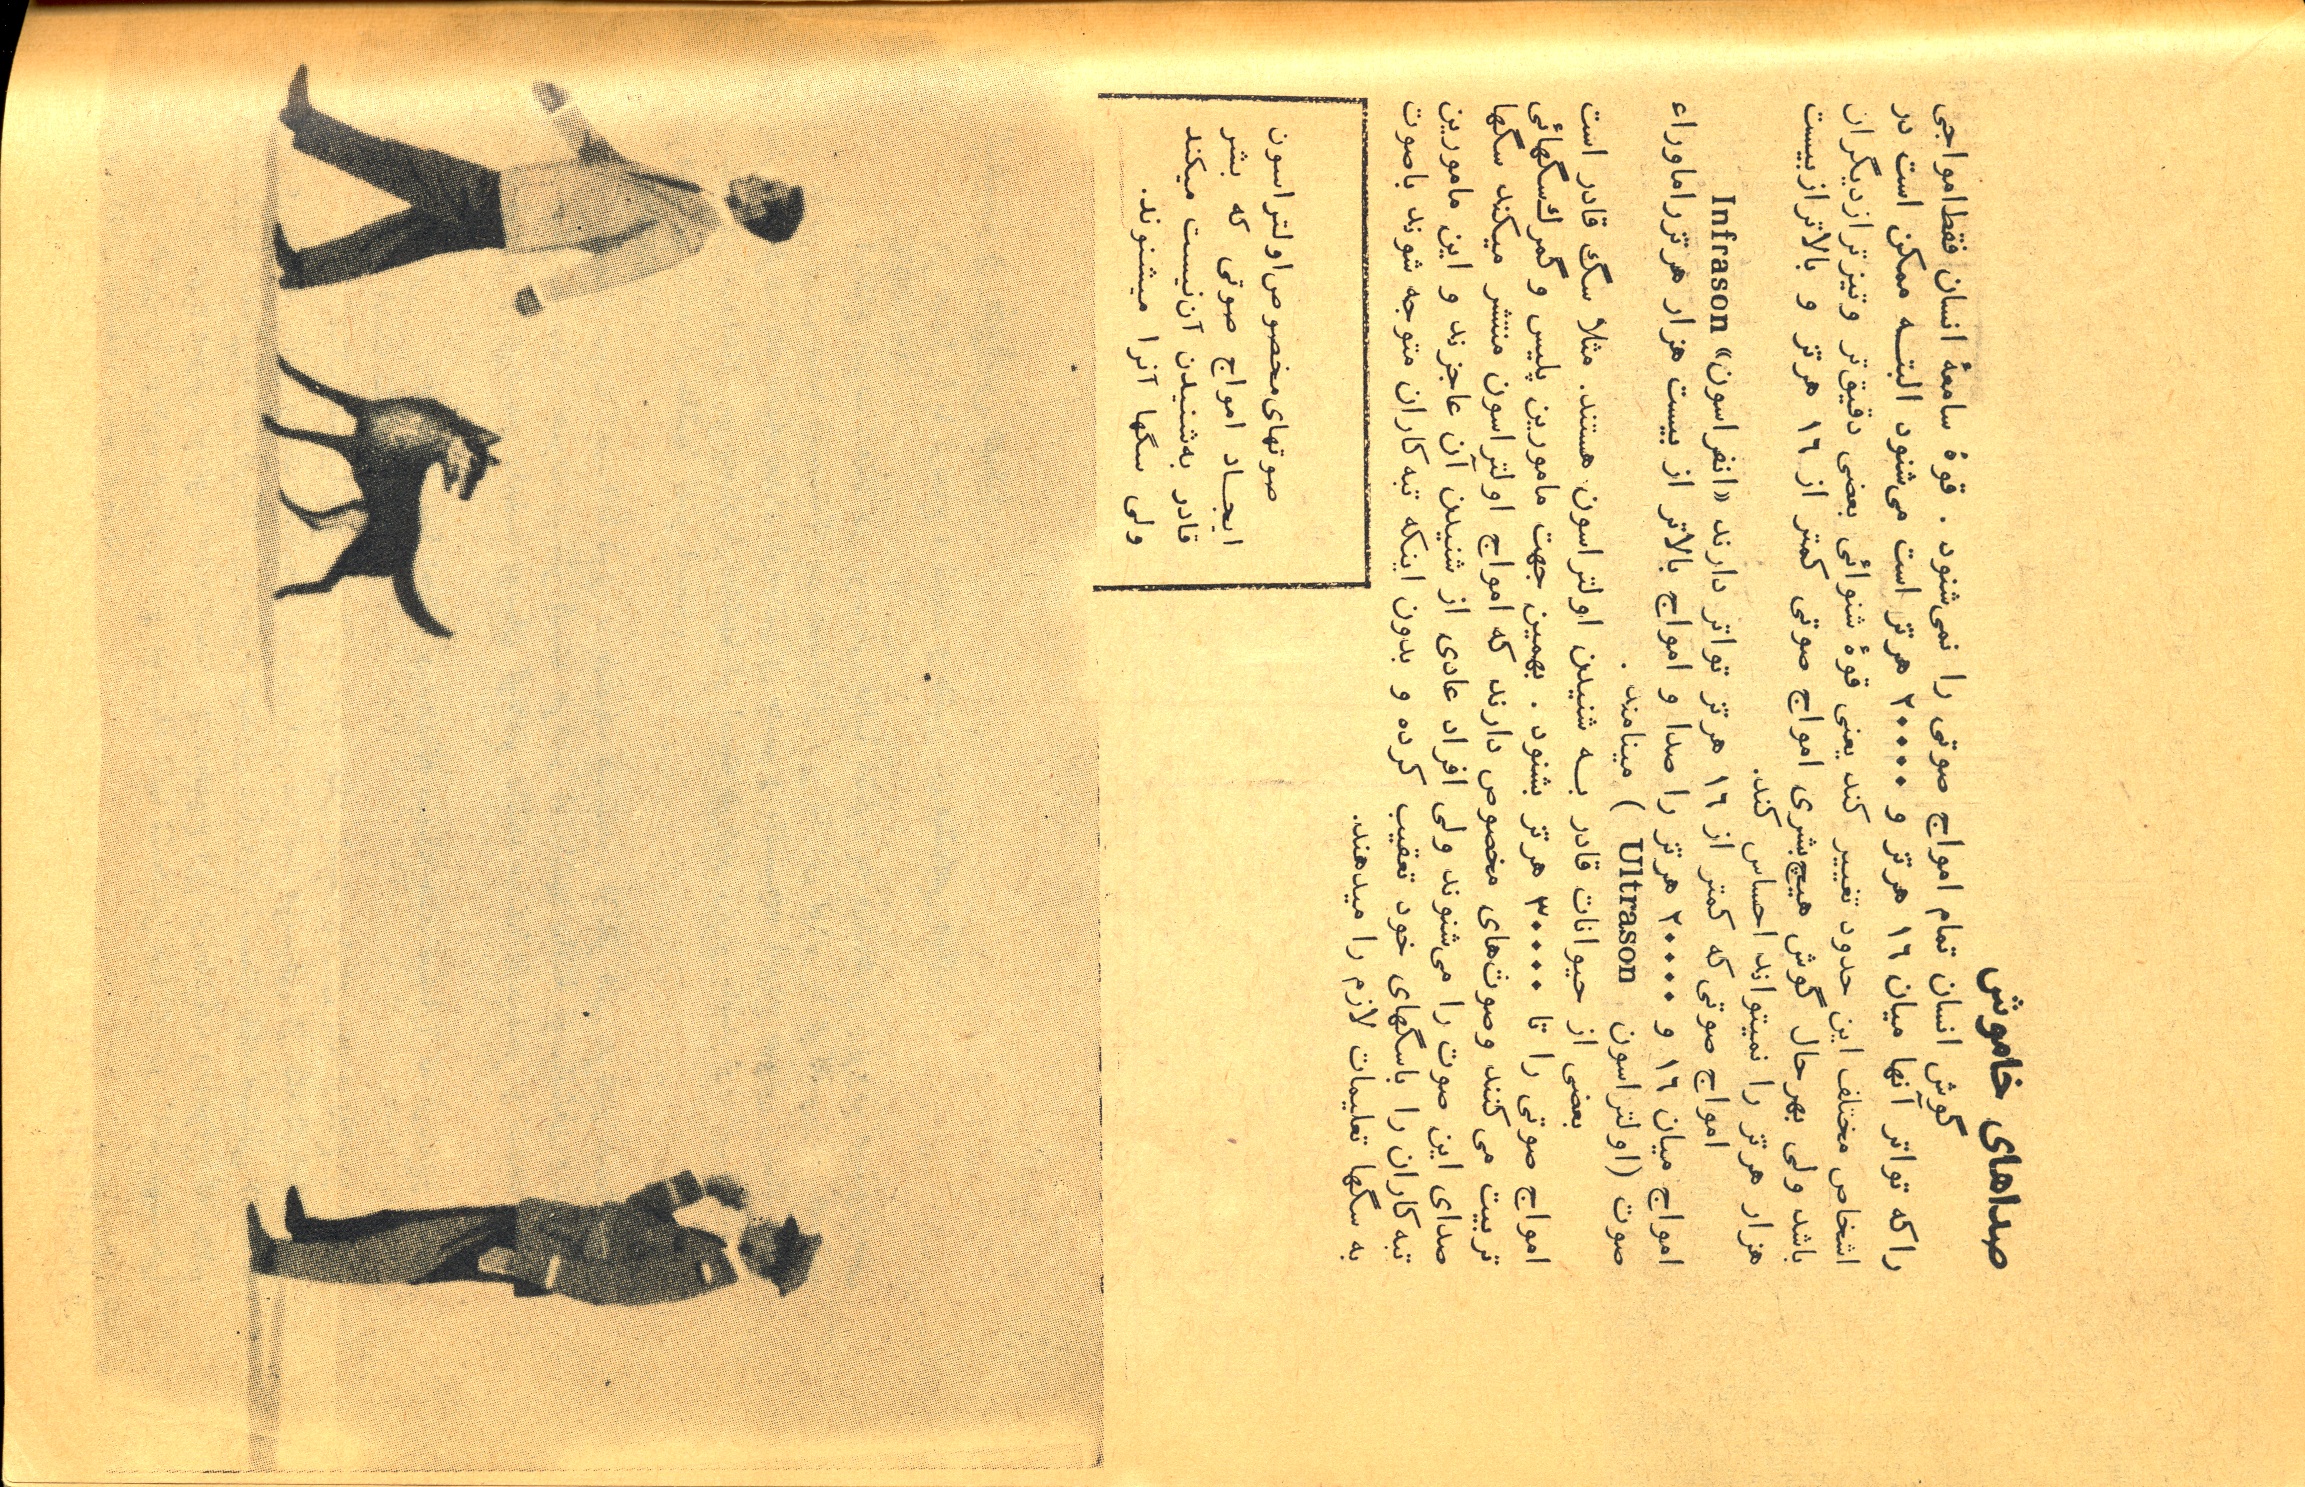 صداهای خاموش
گوش انسان تمام امواج صوتی را نمی‌شنود . قوهٔ سامعهٔ انسان فقط امواجی
را که تواتر آنها میان ۱٦ هرتز و ۲۰۰۰۰ هرتز است می‌شنود البتـه ممکن است در
اشخاص مختلف این حدود تغییر کند یعنی قوهٔ شنوائی بعضی دقیق‌تر وتیزتر ازدیگران
باشد ولی بهرحال گوش هیچ‌بشری امواج صوتی کمتر از ۱٦ هرتز و بالاتر ازبیست
هزار هرتز را نمیتواند احساس کند.
امواج صوتی که کمتر از ۱٦ هرتز تواتر دارند «انفراسون» Infrason
امواج میان ۱٦ و ۲۰۰۰۰ هرتز را صدا و امواج بالاتر از بیست هزار هرتز راماوراء
صوت (اولتراسون Ultrason ) مینامند .
بعضی از حیوانات قادر بـه شنیدن اولتراسون هستند. مثلا سگ قادر است
امواج صوتی را تا ۳۰۰۰۰ هرتز بشنود . بهمین جهت مامورین پلیس و گمرك‌سگهائی
تربیت می‌کنند وصوت‌های مخصوص دارند که امواج اولتراسون منتشر میکند سگها
صدای این صوت را می‌شنوند ولی افراد عادی از شنیدن آن عاجزند و این مامورین
تبه‌کاران را باسگهای خود تعقیب کرده و بدون اینکه تبه‌کاران متوجه شوند باصوت
به سگها تعلیمات لازم را میدهند.
صوتهای‌مخصوص‌اولتراسون
ایجـاد امواج صوتی که بشر
قادر به‌شنیدن آن‌نیست میکند
ولی سگها آنرا میشنوند.